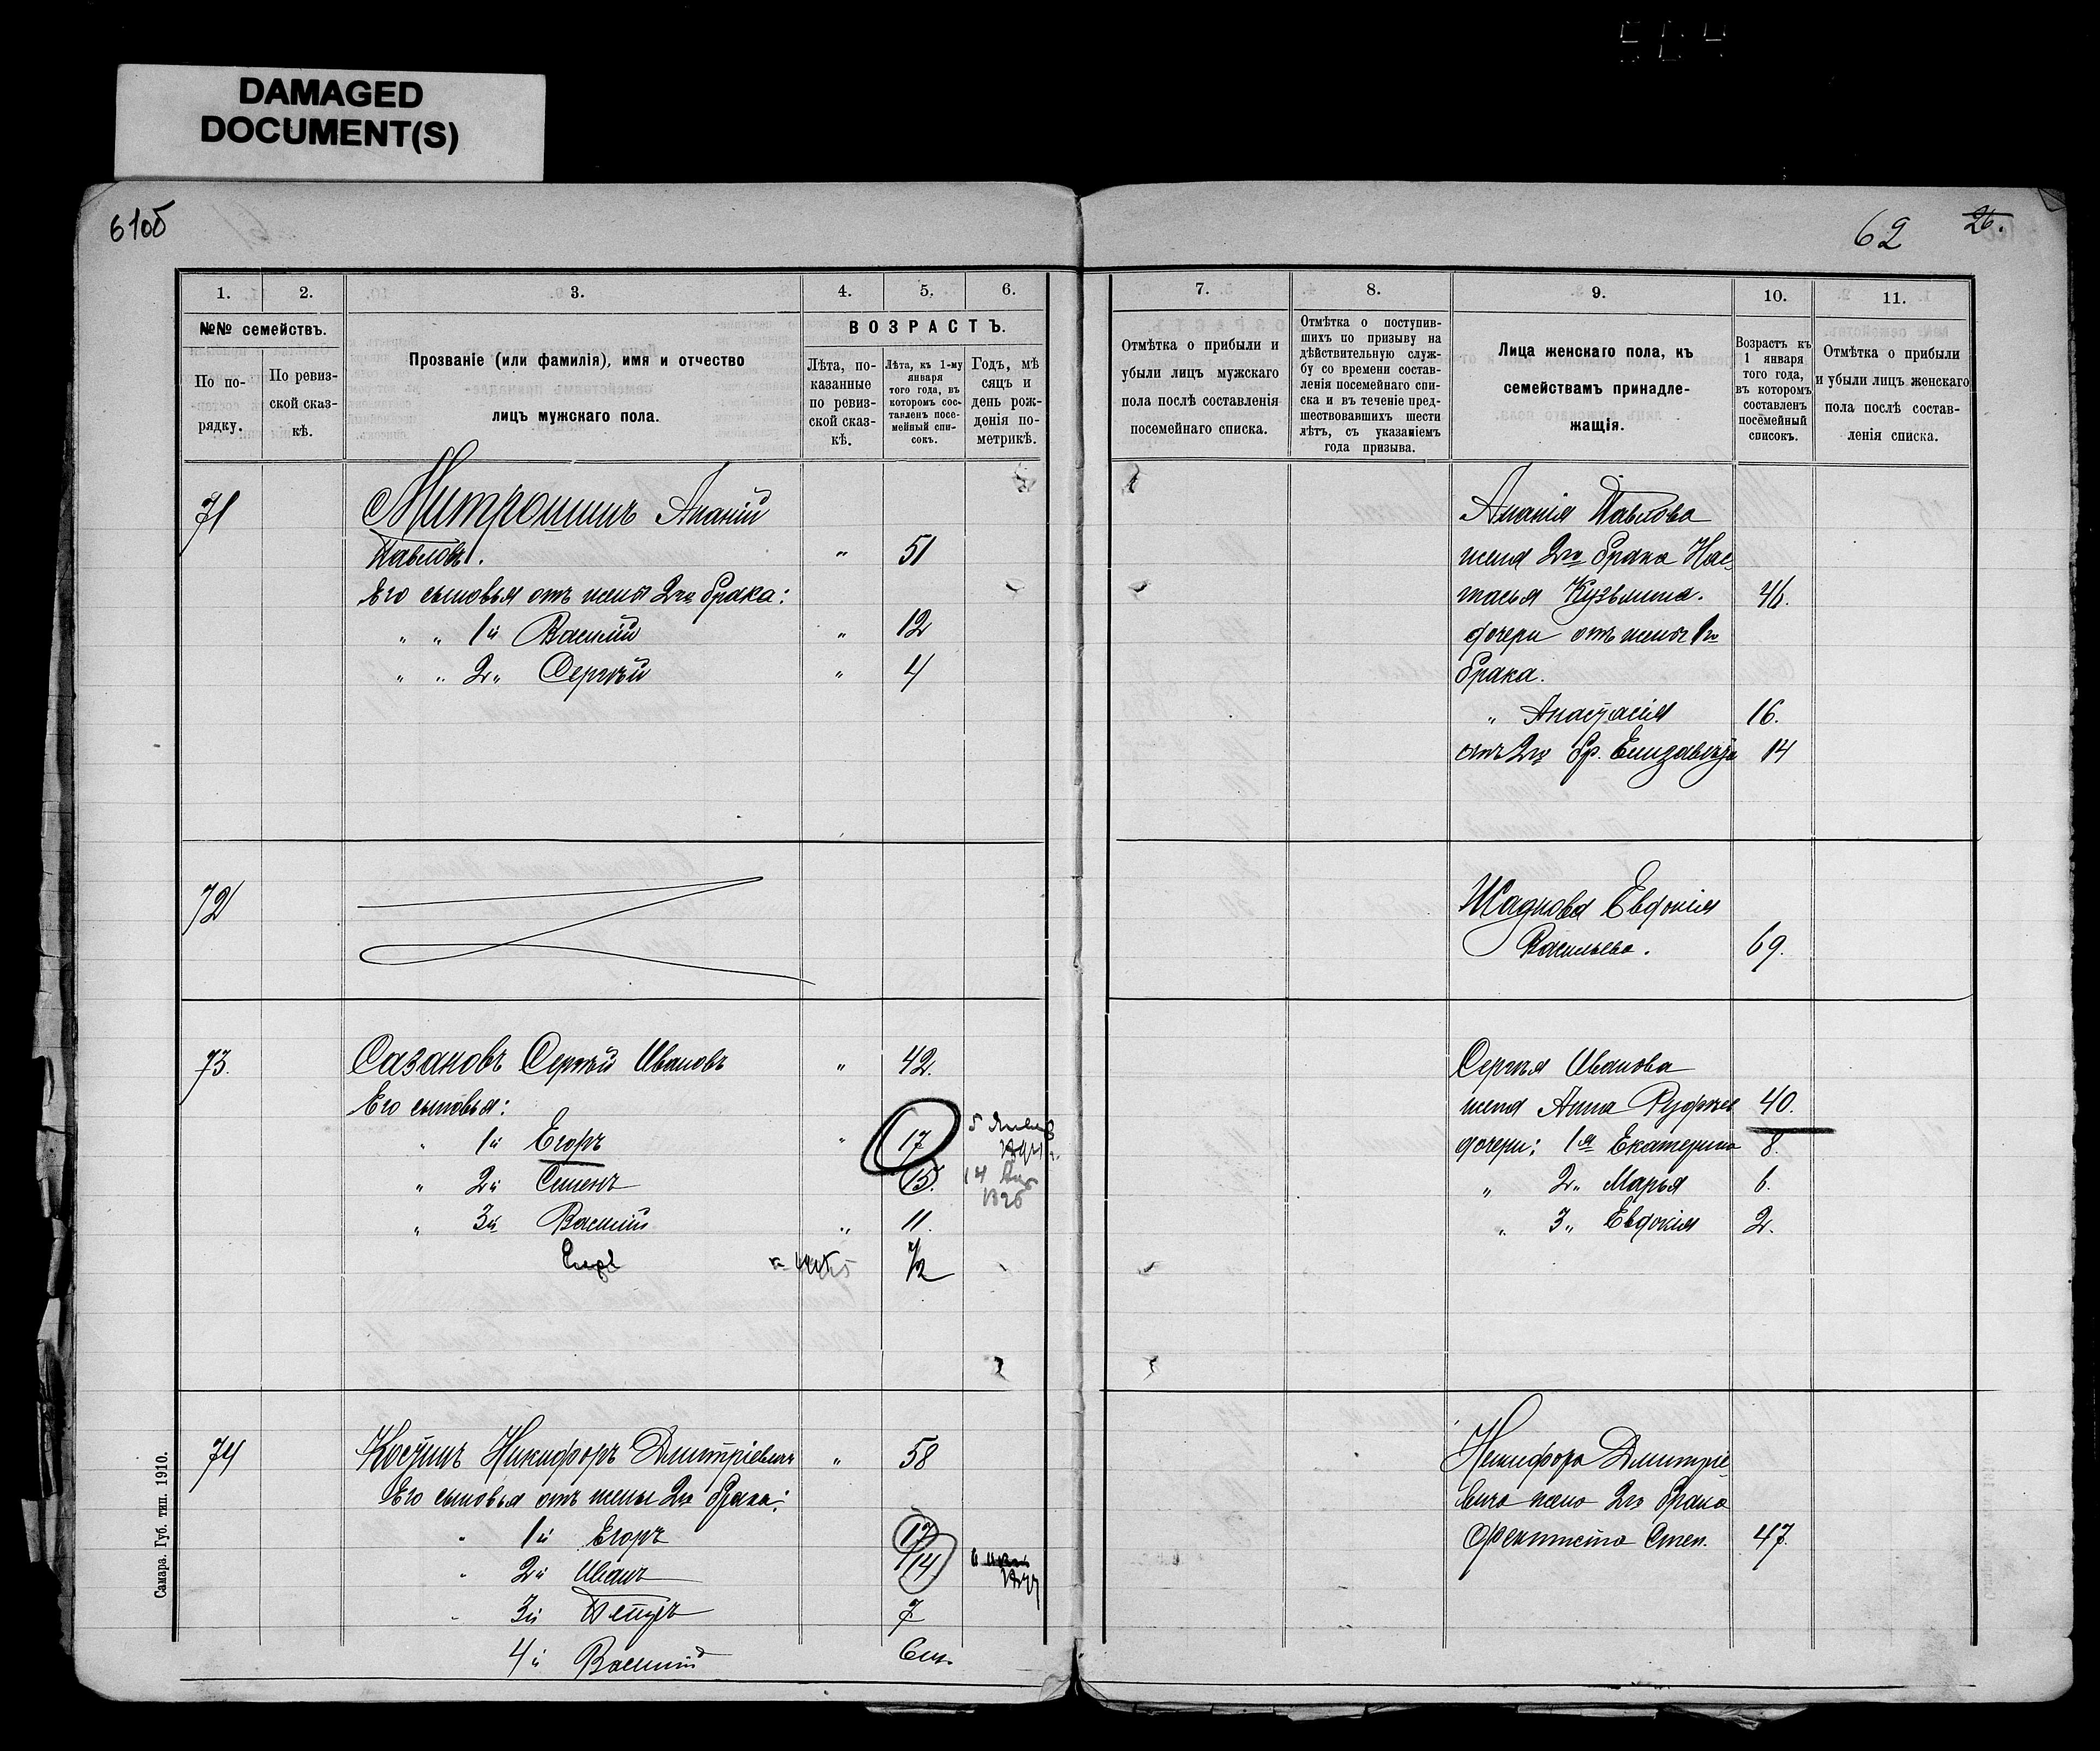 DAMAGED
DOCUMENT(S)
61об
62
26.
1.
2.
3.
4.
5.
6.
№№ семействъ.
По порядку.
По ревизской сказкѣ.
Прозваніе (или фамилія), имя и отчество
лицъ мужскаго пола.
ВОЗРАСТЪ.
Лѣта, по-
казанные
по ревиз-
ской сказ-
кѣ.
Лѣта, къ 1-му
января
того года, въ
которомъ сос-
тавленъ посе-
мейный спи-
сокъ.
Годъ, мѣ
сяцъ и
день рож-
денія по-
метрикѣ.
7.
8.
9.
10.
11.
Отмѣтка о прибыли и
убыли лицъ мужскаго
пола послѣ составленія
посемейнаго списка.
Отмѣтка о поступив-
шихъ по призыву на
дѣйствительную служ-
бу со времени состав-
ленія посемейнаго спи-
ска и въ теченіе пред-
шествовавшихъ шести
лѣтъ, съ указаніемъ
года призыва.
Лица женскаго пола, къ
семействамъ принадле-
жащія.
Возрастъ къ
1 января
того года,
въ которомъ
составленъ
посемейный
списокъ.
Отмѣтка о прибыли
и убыли лицъ женскаго
пола послѣ состав-
ленія списка.
71 Митрошинъ Ананій
Павловъ. " 51
Его сыновья отъ жены 2го брака:
" " 1й Василій " 12
" " 2" Сергѣй " 4
Ананія Павлова
жена 2го брака Нас-
тасья Кузьмина. 46.
дочери отъ жены 1го
брака.
" Анастасія 16.
отъ 2го бр. Елизавета 14
72
Жадкова Евдокія
Васильева. 69.
73. Сазановъ Сергѣй Ивановъ " 42.
Его сыновья:
" 1й Егоръ " 17 5 Янв
" 2й Семенъ 15. 14
" 3й Василій " 11.
1/2
Сергѣя Иванова
жена Анна 40.
дочери: 1я Екатерина 8.
" 2" Марья 6.
" 3" Евдокія 2.
74 Никифоръ Дмитріевичъ " 58
Его сыновья отъ жены 2го брака:
" 1й Егоръ 17
" 2й Иванъ 14
" 3й Петръ 7
4й Василій 6
Никифора Дмитріе-
вича жена 2го брака
Феоктиста Степ. 47.
Самара. Губ. тип. 1910.